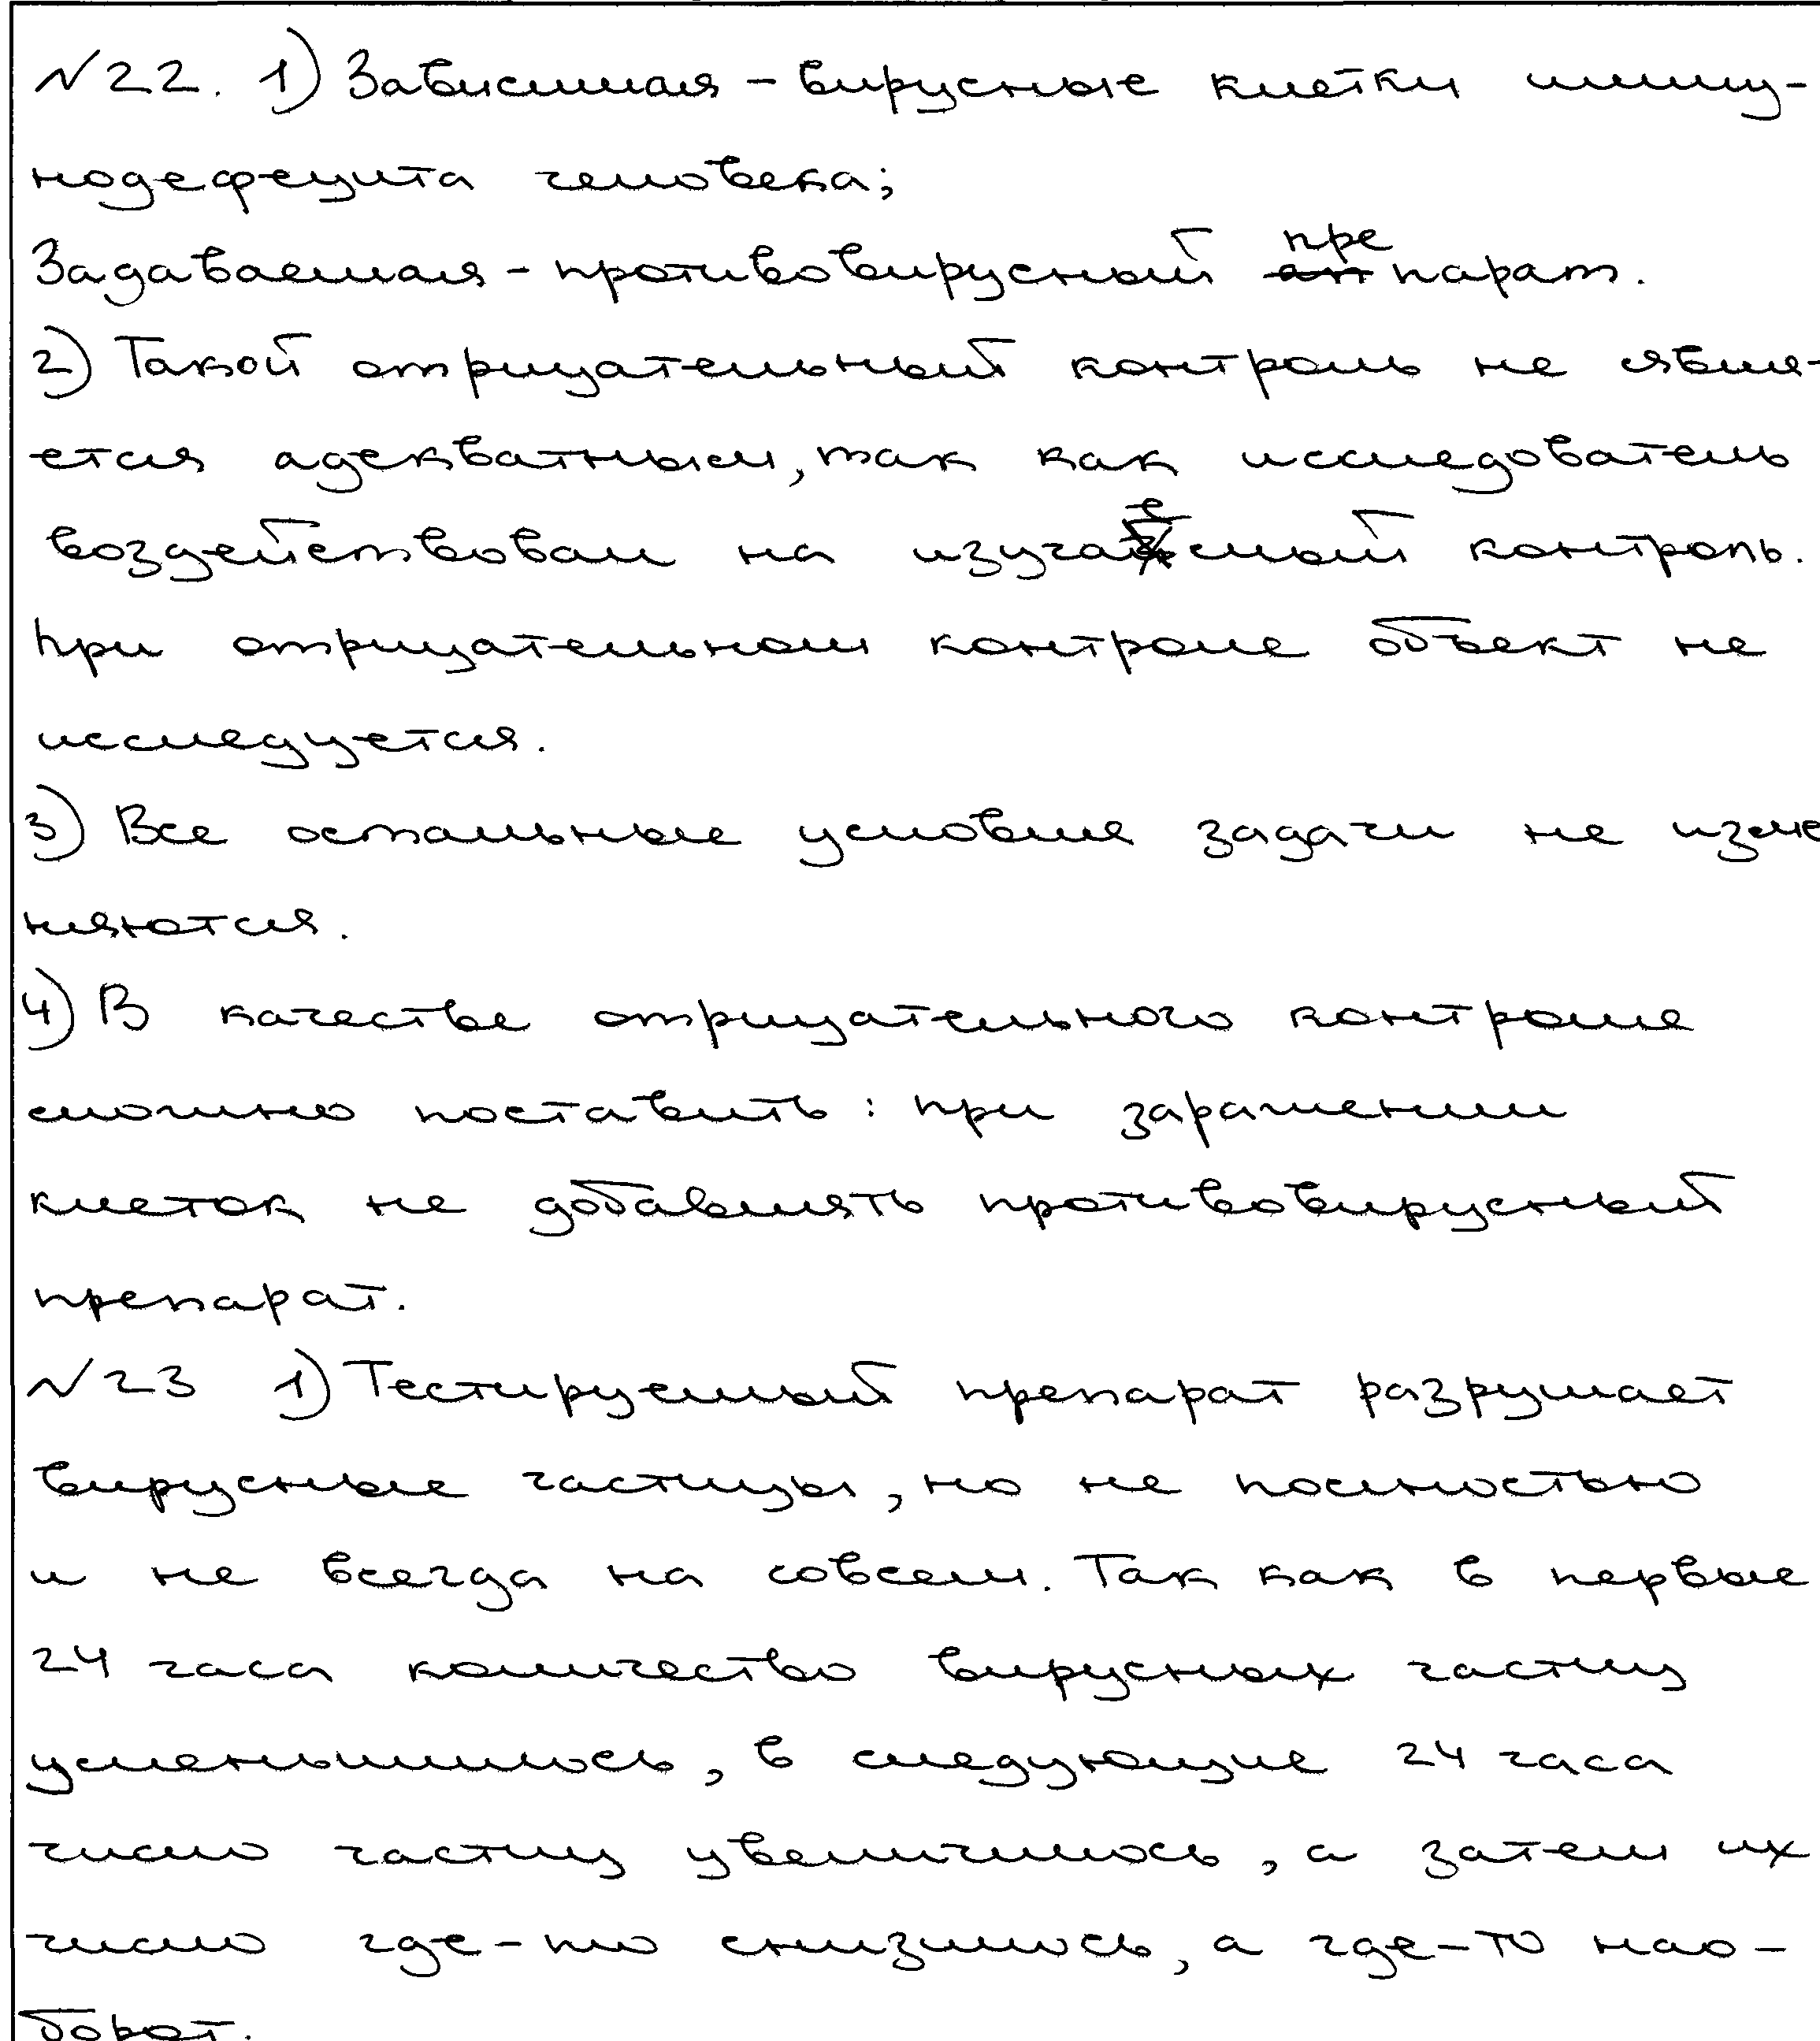 №22. 1) Зависимая - вирусные клетки имму-
нодефецита человека;
Задаваемая - противовирусный препарат.
2) Такой отрицательный контроль не явля-
ется адекватным, так как исследователь
воздействовал на изучаемый контроль.
При отрицательном контроле объект не
исследуется.
3) Все остальные условие задачи не изме
няются.
4) В качестве отрицательного контроле
можно поставить: при заражении
клеток не добавлять противовирусный
препарат.
№23 1) Тестируемый препарат разрушает
вирусные частицы, но не полностью
и не всегда на совсем. Так как в первые
24 часа количество вирусных частиц
уменьшилось, в следующие 24 часа
число частиц увеличилось, а затем их
число где-то снизилось, а где-то нао-
борот.